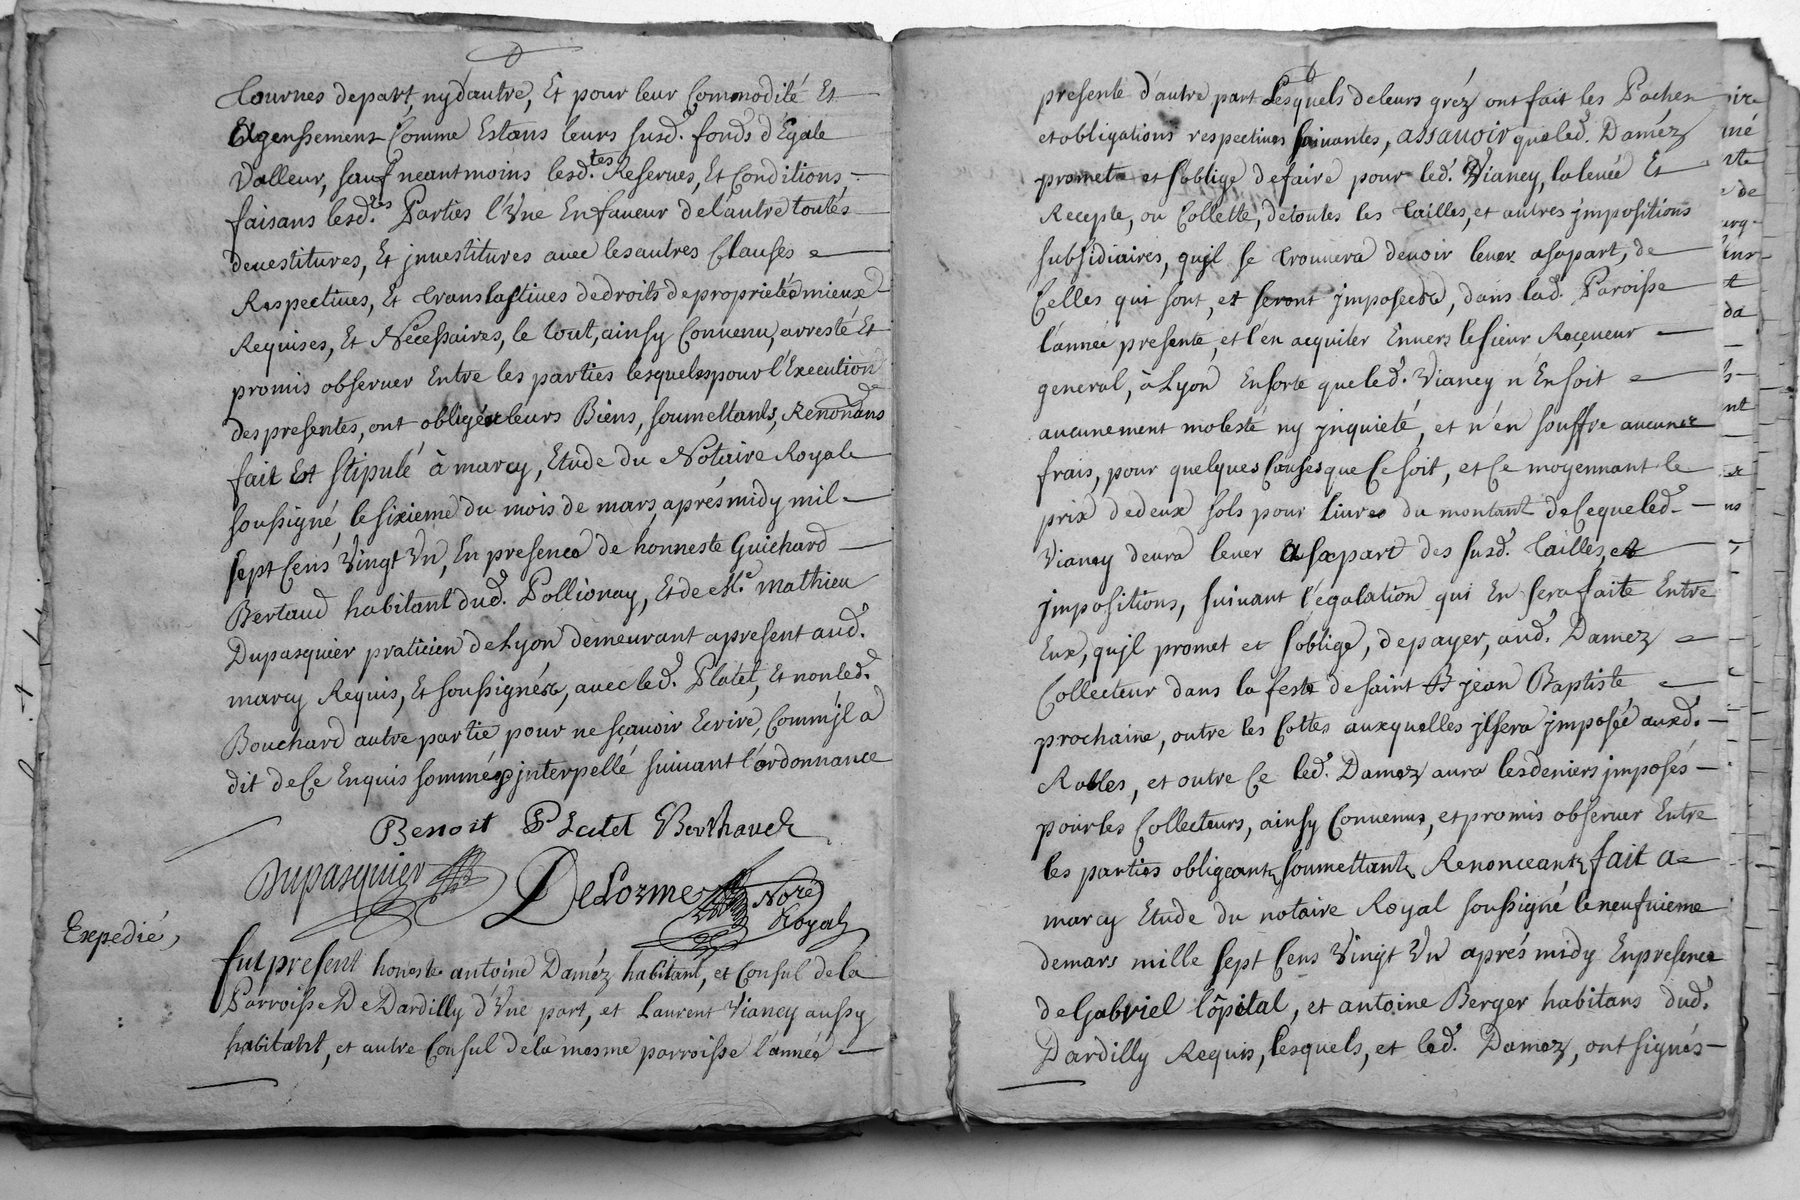 tournes depart, ny d'autre, Et pour leur Commodité Et
Agenssement Comme Estans leurs susd. fonds d'Egale
Valleur, sauf neantmoins lesd.tes Reserves, Et Conditions,
faisans lesd.es Parties l'Vne En faueur de l'autre toutes
deuestitures, Et jnuestitures auec les autres Clauses
Respectiues, Et translastiues de droits de proprieté mieux
Requises, Et Nécessaires, le tout, ainsy Conuenu, arresté Et
promis obseruer Entre les parties lesquelles pour l'Execution
des presentes, ont obligé leurs Biens, soumettants, Renonçans
fait Et stipulé à marcy, Etude du Notaire Royal
soussigné, le sixieme du mois de mars, aprés midy mil
sept Cens Vingt Vn, En presence de honneste Guichard
Bertaud habitant dud. Pollionay, Et de Me. mathieu
Dupasquier praticien de Lyon demeurant apresent aud.
marcy Requis, Et soussignés, avec led. Platet, Et non led.
Bouchard autre partie pour ne sçauoir Ecrire, Comm'jl a
dit de Ce Enquis sommé & jnterpellé suiuant l'ordonnance
Benoit Platet Berthaud
Dupasquier DeLorme Nore
Royal
Expedié,
fut present honeste antoine Daméz habitant, et Consul de la
Parroisse De Dardilly d'Vne part, et Laurent Vianey aussy
habitant, et autre Consul de la mesme parroisse l'année
presente d'autre part Lesquels de leurs gréz ont fait les Paches
et obligations respectiues suiuantes, assauoir que led. Daméz
promet et s'oblige de faire pour led. Vianey, la leuée Et
Recepte, ou Collette, de toutes les tailles, et autres jmpositions
subsidiaires, qujl se trouuera deuoir leuer a sa part, de
Celles qui sont, et seront jmposées, dans lad. Paroisse
l'année presente, et l'en acquiter Enuers le sieur Receueur
general, à Lyon En sorte que led. Vianey n'En soit
aucunement molesté ny jnquieté, et n'en souffre aucuns
frais, pour quelques Causes que Ce soit, et Ce moyennant le
prix de deux sols pour liure du montant de Ce que led.
Vianey deura leuer a sa part des susd. tailles, et
jmpositions, suiuant l'egalation qui En sera faite Entre
Eux, qujl promet et s'oblige, de payer, aud. Damez
Collecteur dans la feste de saint jean Baptiste
prochaine, outre les Cottes auxquelles jl sera jmposé auxd.
Robles, et outre Ce led. Damez aura les deniers jmposés
pour les Collecteurs, ainsy Conuenus, et promis obseruer Entre
les parties obligeantz soumettantz Renonceantz fait a
marcy Etude du notaire Royal soussigné le neufuieme
de mars mille sept Cens Vingt Vn aprés midy En presence
de Gabriel l'ôpital, et antoine Berger habitans dud.
Dardilly Requis, lesquels, et led. Damez, ont signés